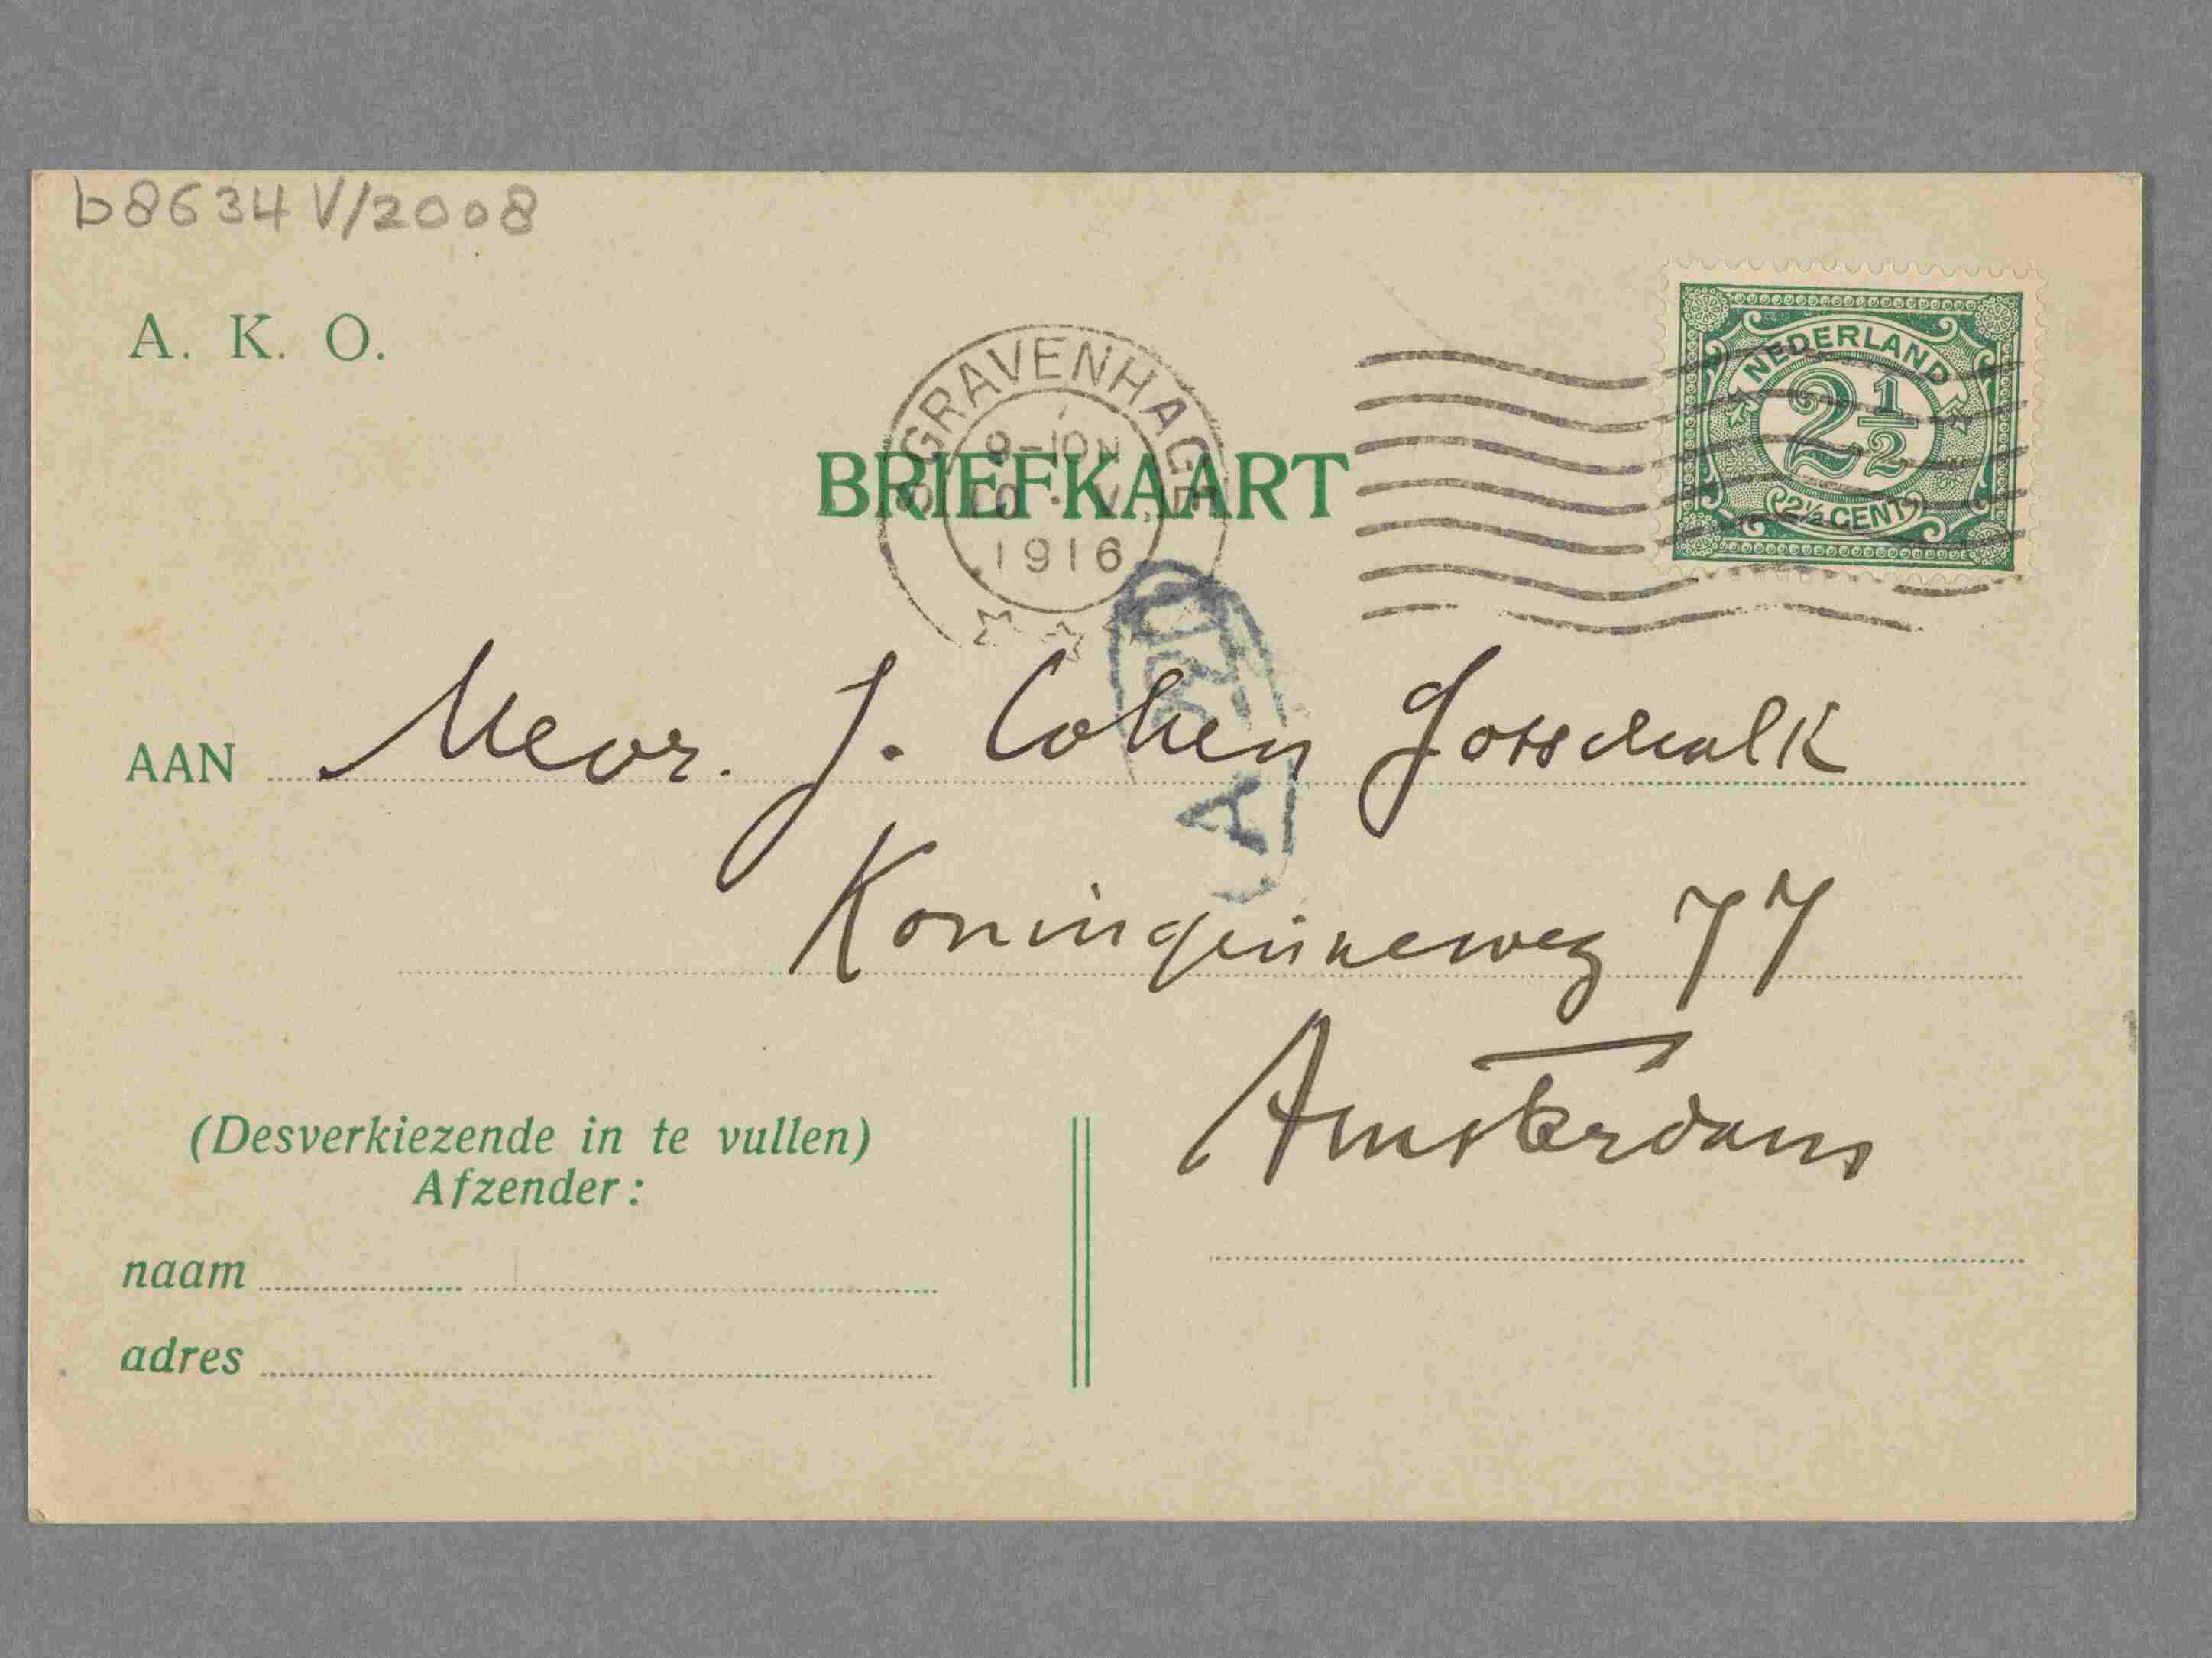 b8634 V/2008
A. K. O.
'S GRAVENHAGE
9-10N
1916
NEDERLAND
2 1/2
2½ CENT
BRIEFKAART
AAN Mevr. J. Cohen Gosschalk
Koninginneweg 77
Amsterdam
(Desverkiezende in te vullen)
Afzender:
naam
adres